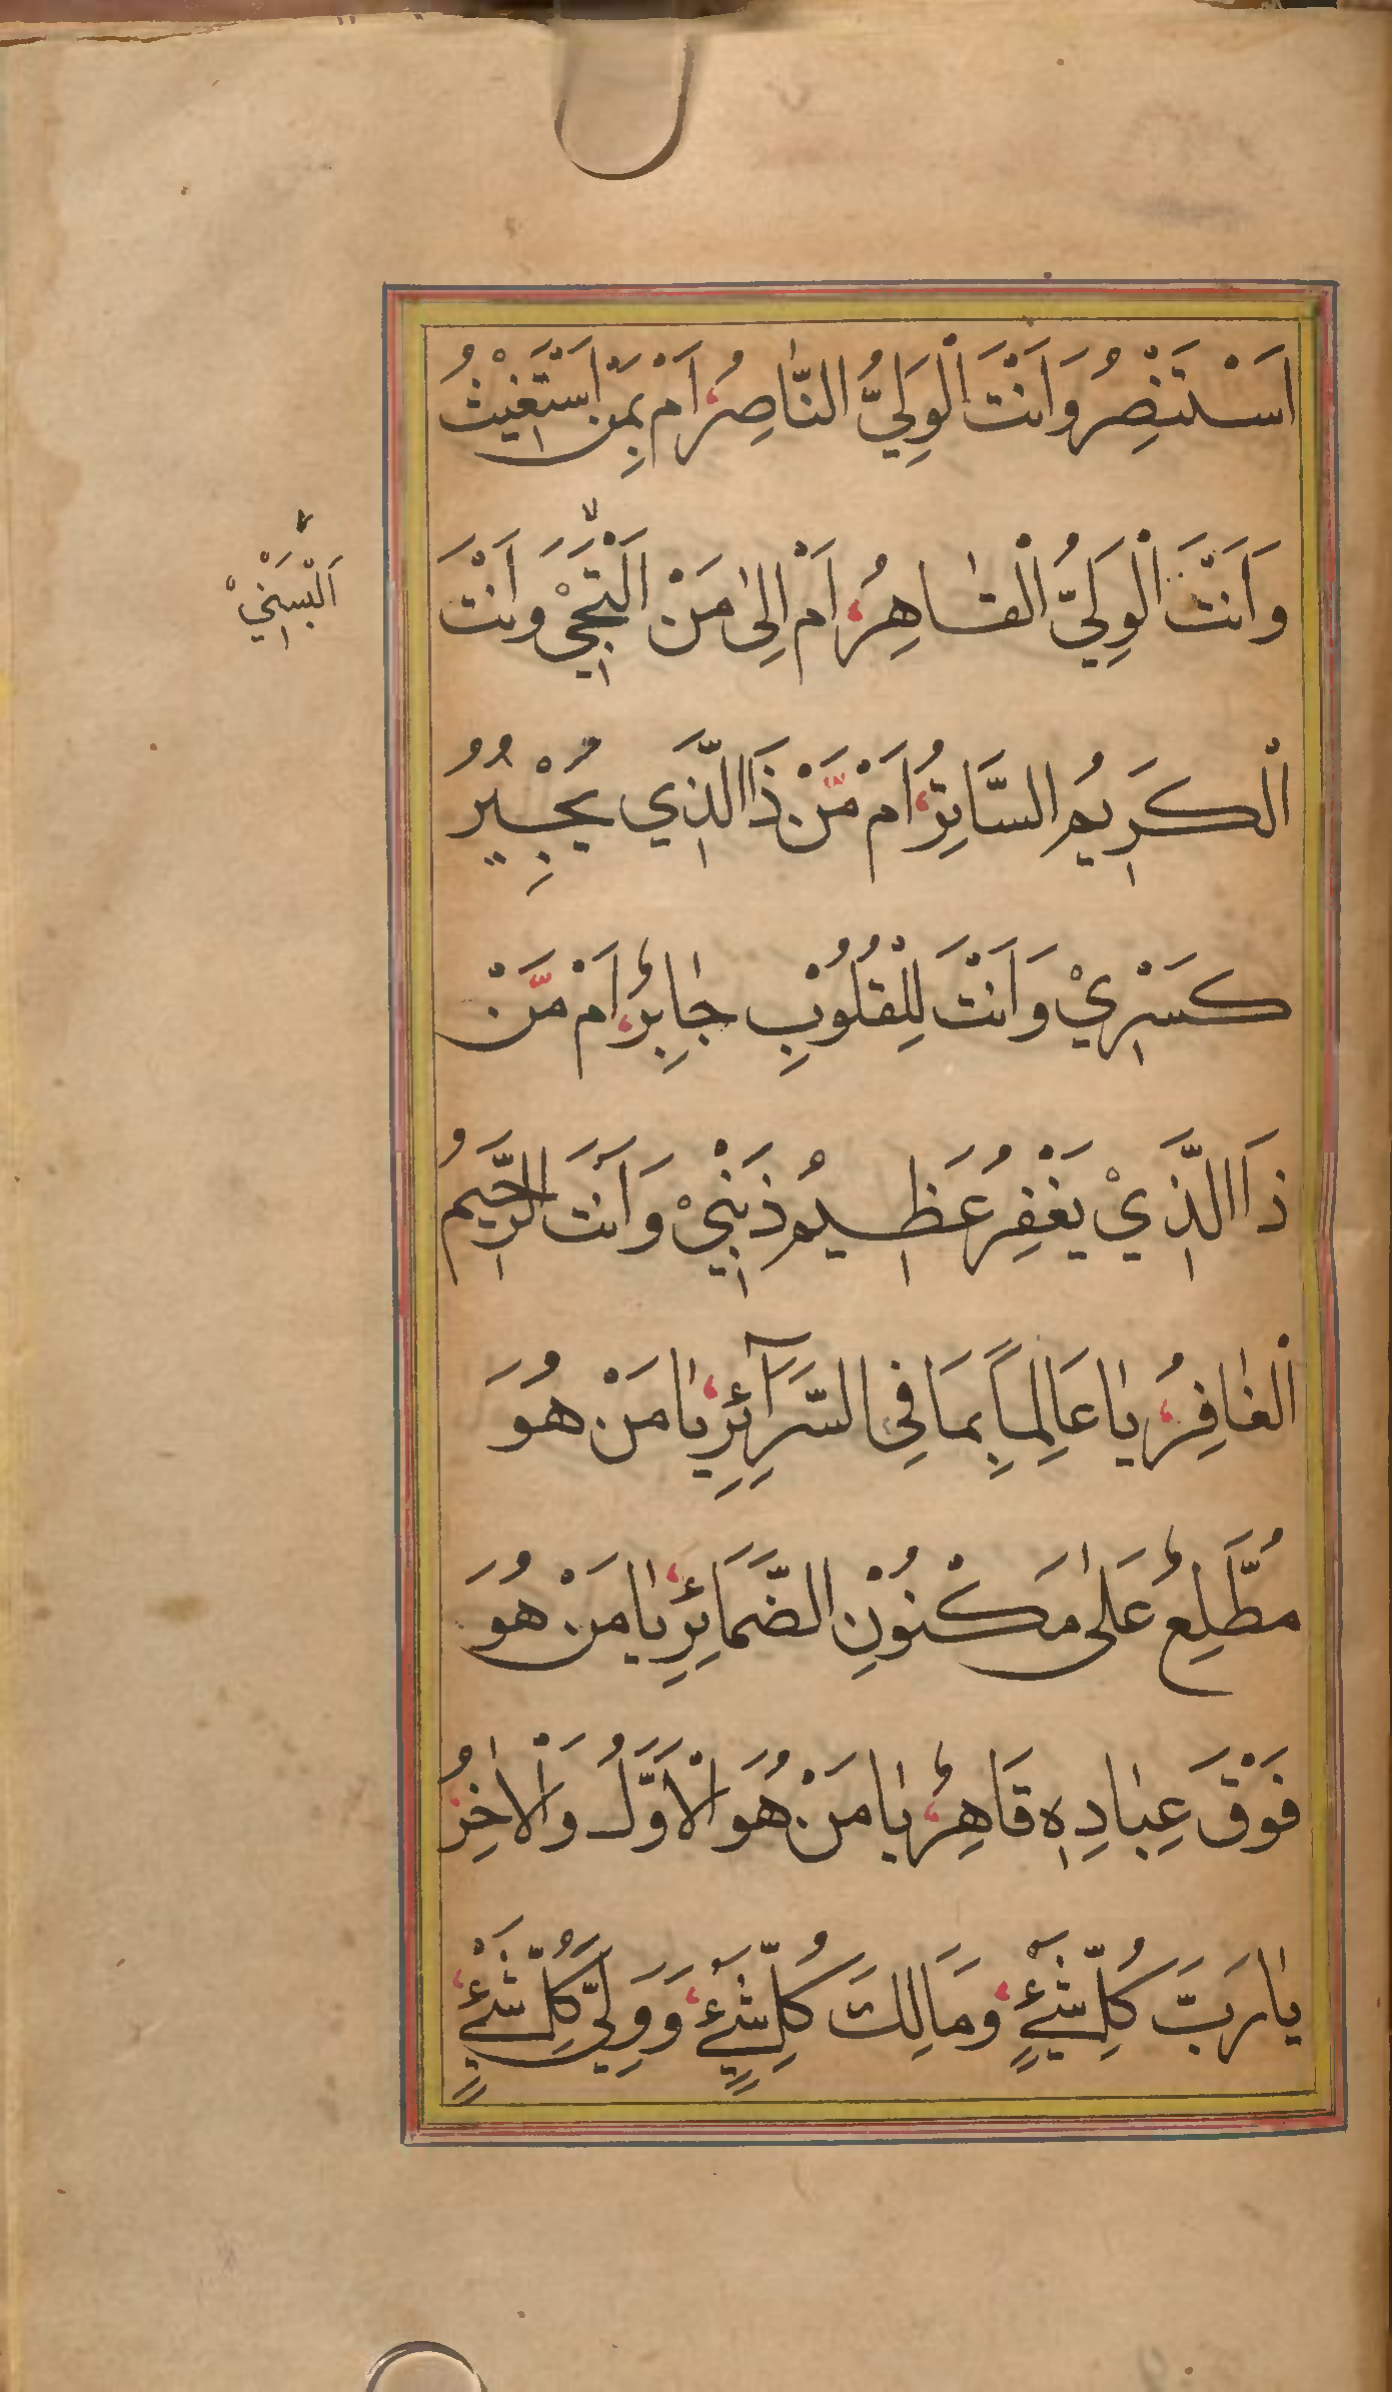 اَسْتَنْصِرُ وَاَنْتَ الْوَلِيُّ النّٰاصِرُ اَمْ بِمَنْ اَسْتَغِيْثُ
وَاَنْتَ الْوَلِيُّ الْقٰاهِرُ اَمْ اِلٰى مَنْ اَلْتَجِيْ وَاَنْتَ
الْكَرِيمُ السَّاتِرُ اَمْ مَّنْ ذَا الَّذِي يُجْبِيُرُ
كَسْرِيْ وَاَنْتَ لِلْقُلُوْبِ جٰابِرٌ اَمْ مَّنْ
ذَا الَّذِيْ يَغْفِرُ عَظِيمُ ذَنْبِيْ وَاَنْتَ الرَّحِيمُ
الْغٰافِرُ يٰا عَالِماً بِمَا فِى السَّرَآئِرِ يٰا مَنْ هُوَ
مُطَّلِعٌ عَلٰى مَكْنُوْنِ الضَّمَائِرِ يٰا مَنْ هُوَ
فَوْقَ عِبٰادِهٖ قَاهِرٌ يٰا مَنْ هُوَ الْاَوَّلُ وَالْاٰخِرُ
يٰا رَبَّ كُلِّ شَيْءٍ وَمَالِكَ كُلِّ شَيْءٍ وَوَلِيَّ كُلِّ شَيْءٍ